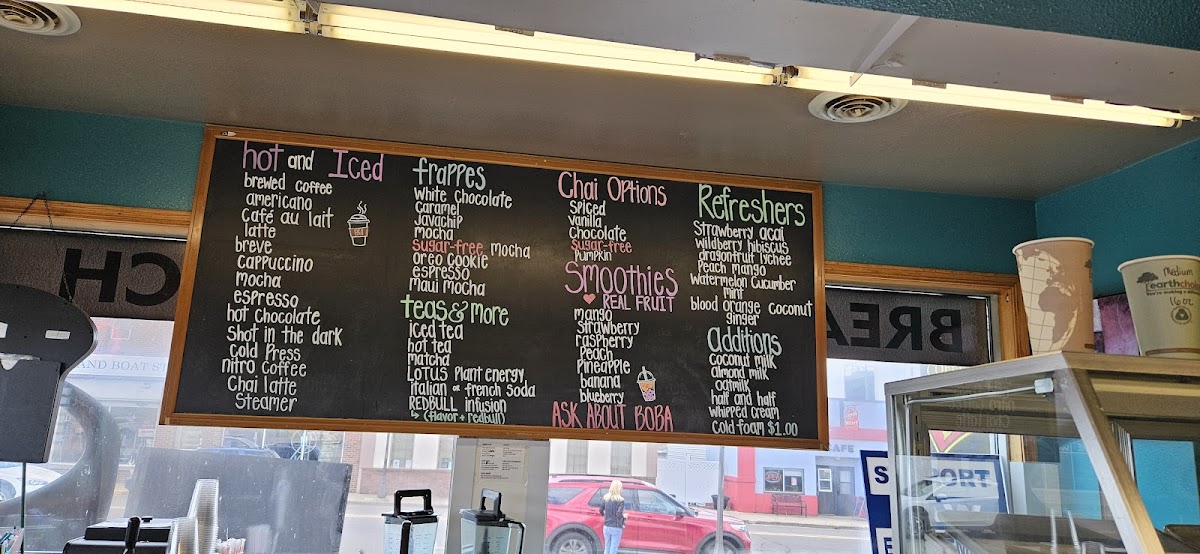 hot and Iced
brewed coffee
americano
Café au lait
latte
breve
cappuccino
mocha
espresso
hot chocolate
shot in the dark
cold Press
nitro coffee
Chai latte
Steamer
frappes
White chocolate
Caramel
Javachip
mocha
sugar-free mocha
oreo cookie
espresso
Maui Mocha
teas & More
iced tea
hot tea
matcha
LOTUS Plant energy
italian or french Soda
REDBULL infusion
(flavor + redbull)
Chai Options
Spiced
Vanilla
Chocolate
Sugar-free
Pumpkin
Smoothies
REAL FRUIT
mango
Strawberry
raspberry
Peach
Pineapple
banana
blueberry
ASK ABOUT BOBA
Refreshers
Strawberry acai
wildberry hibiscus
dragonfruit lychee
Peach mango
Watermelon Cucumber
mint
blood orange coconut
ginger
Additions
Coconut milk
almond milk
oatmilk
half and half
whipped cream
Cold foam $1.00
CH
BREA
Medium
earthchoi
16 oz
AND BOAT
CAFE
S PORT